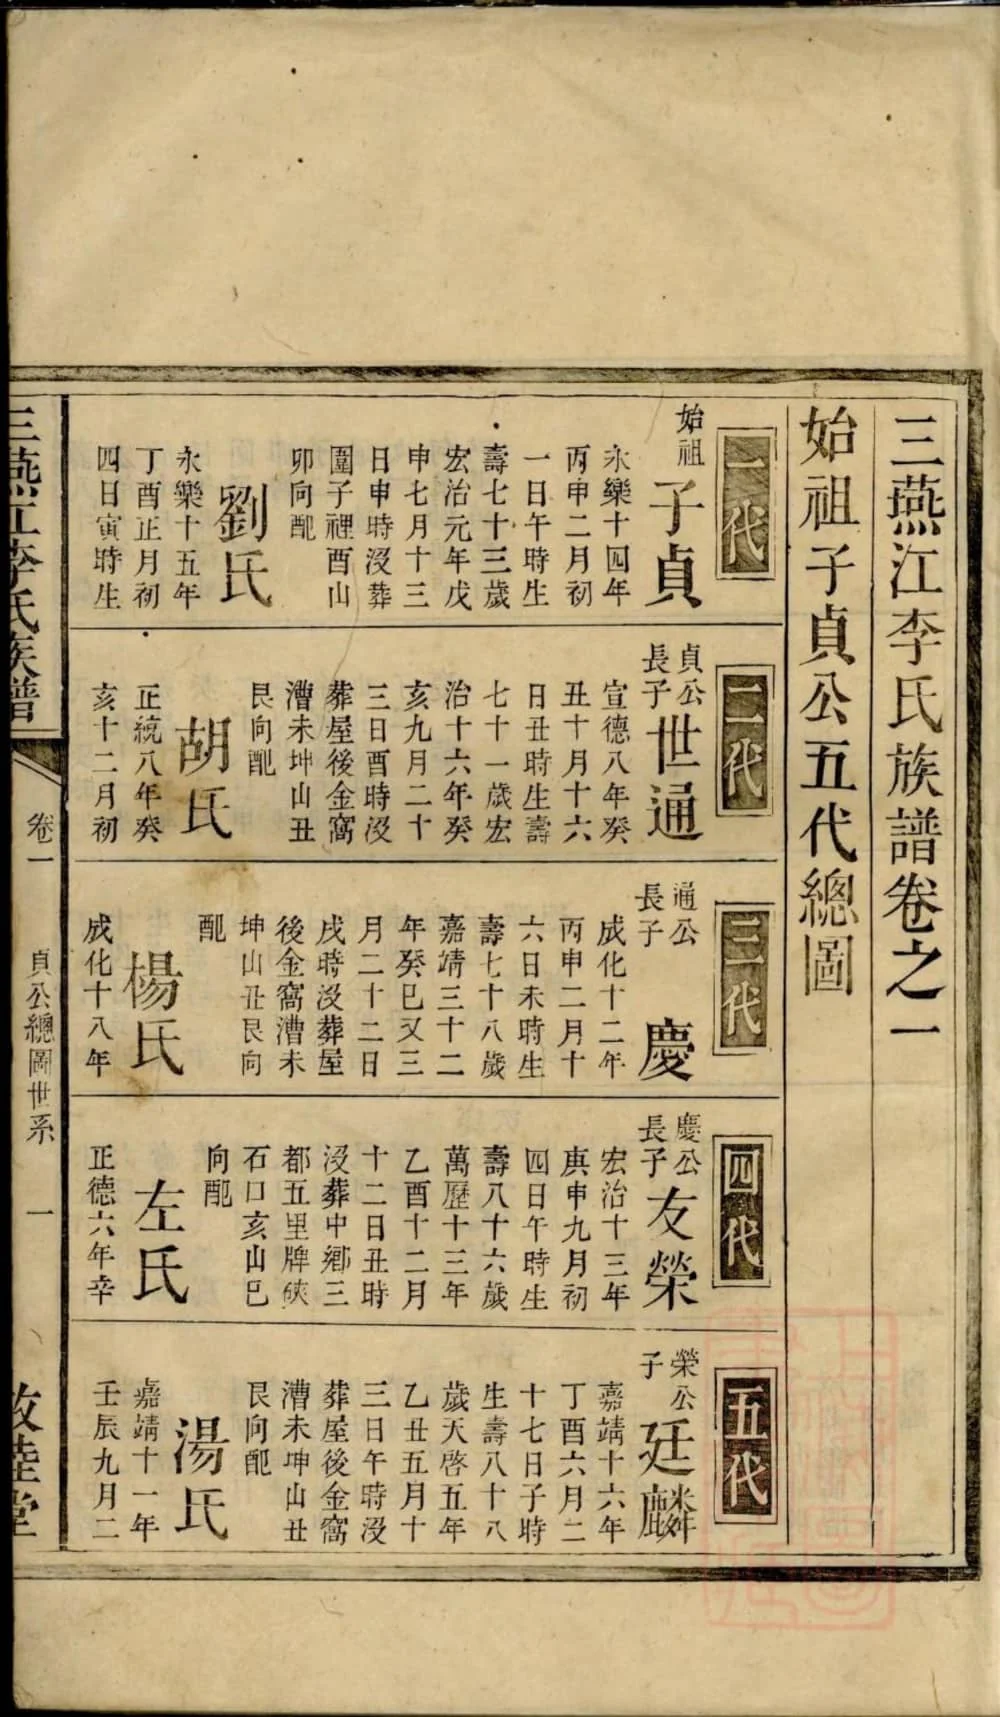 三燕江李氏族譜卷之一
始祖子貞公五代總圖
一代
始祖
子貞
永樂十四年
丙申二月初
一日午時生
壽七十三歲
宏治元年戊
申七月十三
日申時沒葬
圍子裡酉山
卯向配
劉氏
永樂十五年
丁酉正月初
四日寅時生
二代
貞公
長子
世通
宣德八年癸
丑十月十六
日丑時生壽
七十一歲宏
治十六年癸
亥九月二十
三日酉時沒
葬屋後金窩
漕未坤山丑
艮向配
胡氏
正統八年癸
亥十二月初
三代
通公
長子
慶
成化十二年
丙申二月十
六日未時生
壽七十八歲
嘉靖三十二
年癸巳又三
月二十二日
戌時沒葬屋
後金窩漕未
坤山丑艮向
配
楊氏
成化十八年
四代
慶公
長子
友榮
宏治十三年
庚申九月初
四日午時生
壽八十六歲
萬歷十三年
乙酉十二月
十二日丑時
沒葬中鄉三
都五里牌硤
石口亥山巳
向配
左氏
正德六年辛
五代
榮公
子
廷麟
嘉靖十六年
丁酉六月二
十七日子時
生壽八十八
歲天啓五年
乙丑五月十
三日午時沒
葬屋後金窩
漕未坤山丑
艮向配
湯氏
嘉靖十一年
壬辰九月二
三燕江李氏族譜
卷一
貞公總圖世系
一
敦睦堂